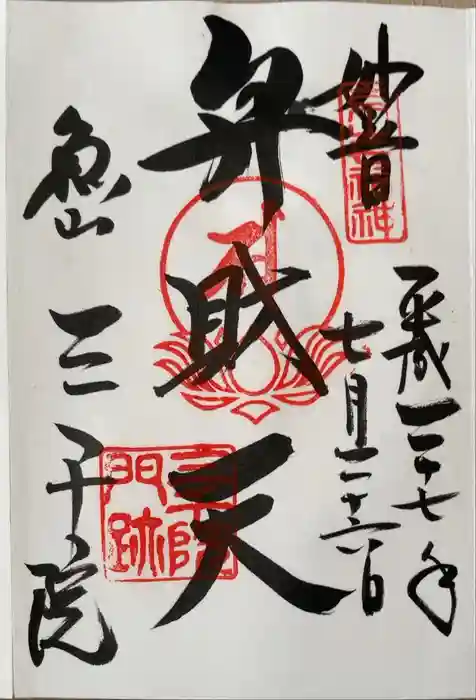 妙音
平成二十七年
七月二十六日
弁財天
三千院
門跡
魚山
三千院